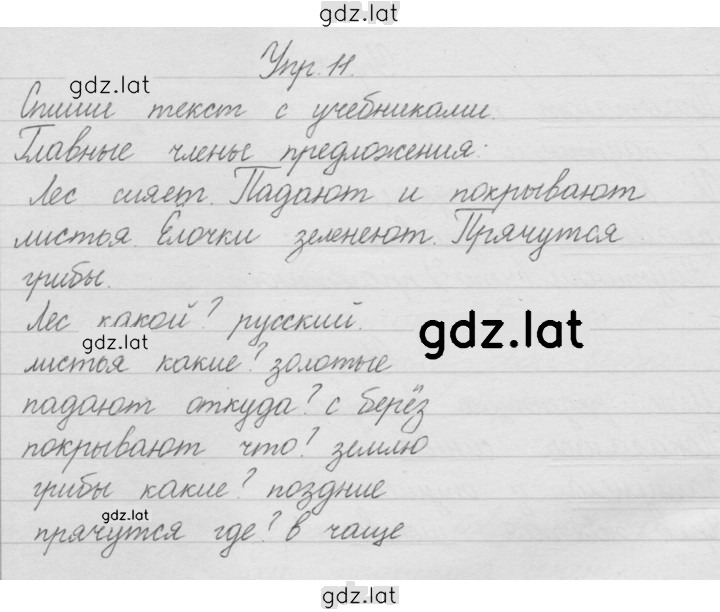 gdz.lat
Упр. 11.
gdz.lat
Спиши текст с учебниками.
Главные члены предложения:
Лес сияет. Падают и покрывают
листья. Ёлочки зеленеют. Прячутся
грибы.
Лес какой? русский.
gdz.lat
gdz.lat
листья какие? золотые
падают откуда? с берёз
покрывают что? землю
грибы какие? поздние
gdz.lat
прячутся где? в чаще
gdz.lat